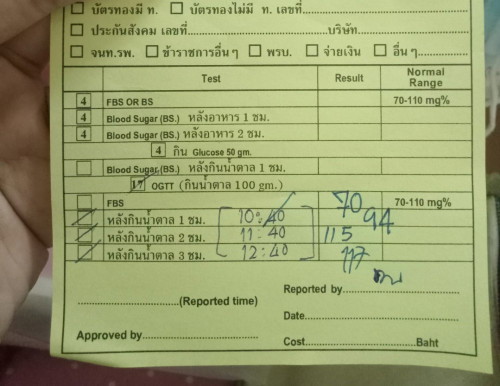 ☐ บัตรทองมี ท. ☐ บัตรทองไม่มี ท. เลขที่
☐ ประกันสังคม เลขที่ บริษัท
☐ จนท.รพ. ☐ ข้าราชการอื่น ๆ ☐ พรบ. ☐ จ่ายเงิน ☐ อื่น ๆ
Test Result Normal Range
4 FBS OR BS 70-110 mg%
4 Blood Sugar (BS.) หลังอาหาร 1 ชม.
4 Blood Sugar (BS.) หลังอาหาร 2 ชม.
4 กิน Glucose 50 gm.
☐ Blood Sugar (BS.) หลังกินน้ำตาล 1 ชม.
17 OGTT (กินน้ำตาล 100 gm.)
☐ FBS 70 70-110 mg%
หลังกินน้ำตาล 1 ชม. 10:40 94
หลังกินน้ำตาล 2 ชม. 11:40 115
หลังกินน้ำตาล 3 ชม. 12:40 117
(Reported time) Reported by
Date
Approved by Cost Baht